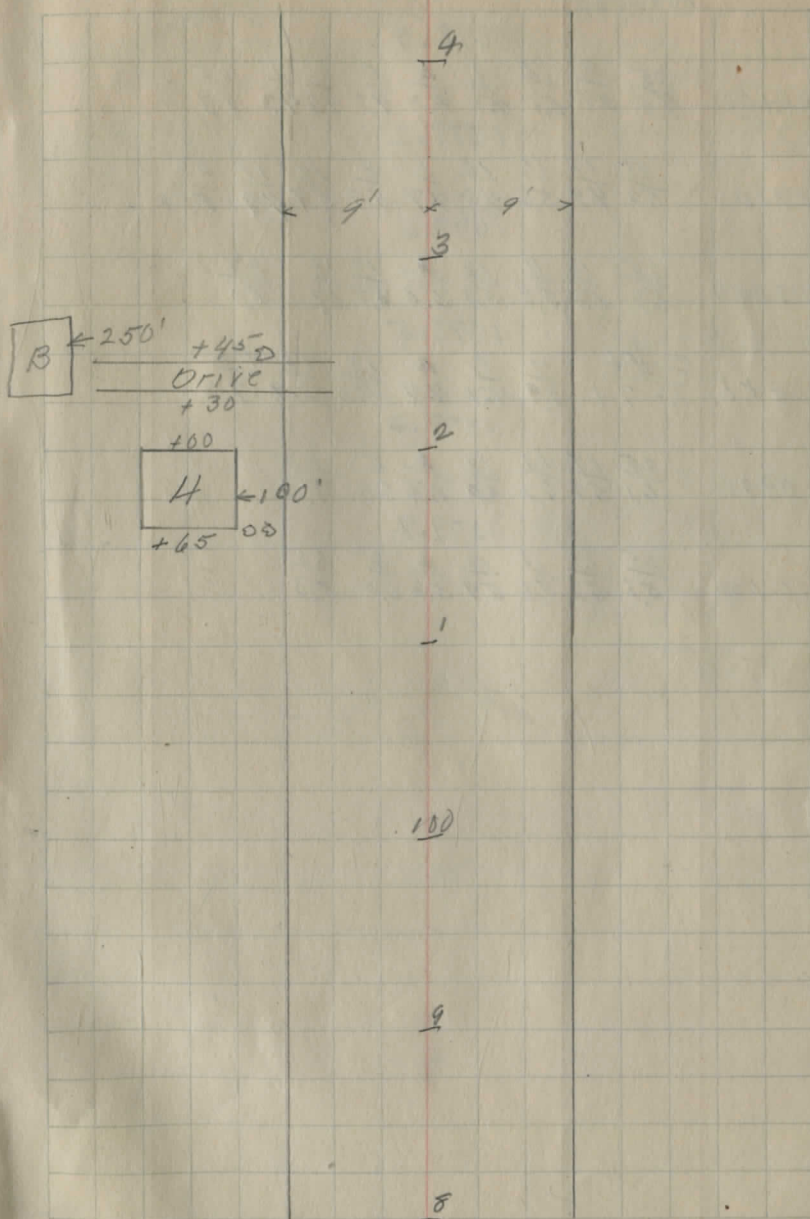 4
9' 9'
3
250' +45
B Drive
+30
2
+00
H 100'
+65
1
100
9
8